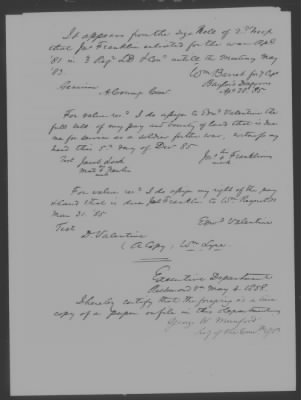 It appears from the size Role of 2d Troop
that Jas Franklin enlisted for the war
81 in 3 Regt LD & Con untill the meeting May
83.
Wm Barret
Baylor's Dragoons
85
A Comg
For value recd I do assign to Edmd Valentine the
full of my pay and bounty of land that is due
me for service as a soldier for the war, witness my
hand this 5th day of Decr 85
Jas Franklin
mark
Test
For value recd I do assign my right of the pay
& land that is due Jas Franklin to Wm Reynolds
Mar 31 85
Edmd Valentine
Test
D. Valentine
(A Copy) Wm
Executive Department
Richmond Va May 4 1858.
I hereby certify that the foregoing is a true
copy of a paper on file in this department
George W. Munford
Secy of the Comth